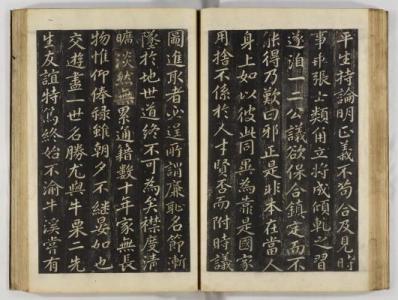 平生持論明正義不苟合及見時
事乖張士類角立將成傾軋之習
遂洎一二公議欲保合鎮定而不
能得乃歎曰邪正是非本在當人
身上如以彼此同異為靠是國家
用捨不係於人才賢否而附時議
圖進取者必逞所謂廉恥名節漸
墜於地世道終不可為矣襟度清
曠淡然無累通籍數十年家無長
物惟仰俸錄雖朝夕不繼晏如也
交遊盡一世名勝尤與牛栗二先
生友誼特篤終始不渝牛溪嘗有